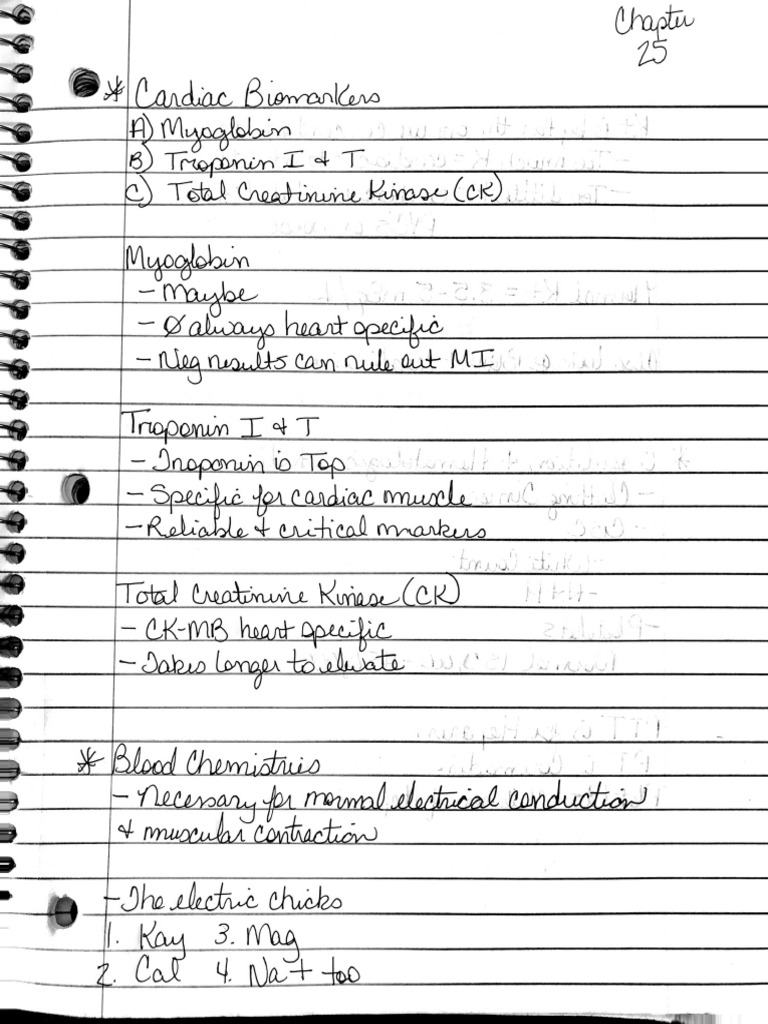 Chapter
25
* Cardiac Biomarkers
A) Myoglobin
B) Troponin I & T
C) Total Creatinine Kinase (CK)
Myoglobin
- Maybe
- Ø always heart specific
- Neg results can rule out MI
Troponin I & T
- Troponin is Top
- Specific for cardiac muscle
- Reliable & critical markers
Total Creatinine Kinase (CK)
- CK-MB heart specific
- Takes longer to elevate
* Blood Chemistries
- Necessary for normal electrical conduction
& muscular contraction
- The electric chicks
1. Kay 3. Mag
2. Cal 4. Na+ too